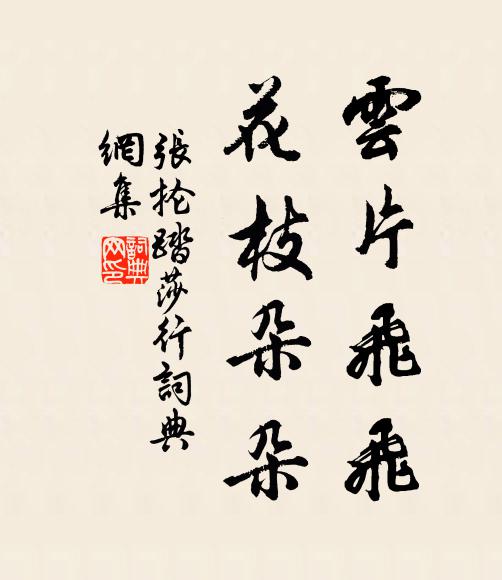 雲片飛飛
花枝朵朵
張抡踏莎行詞典
網集
詞典网印